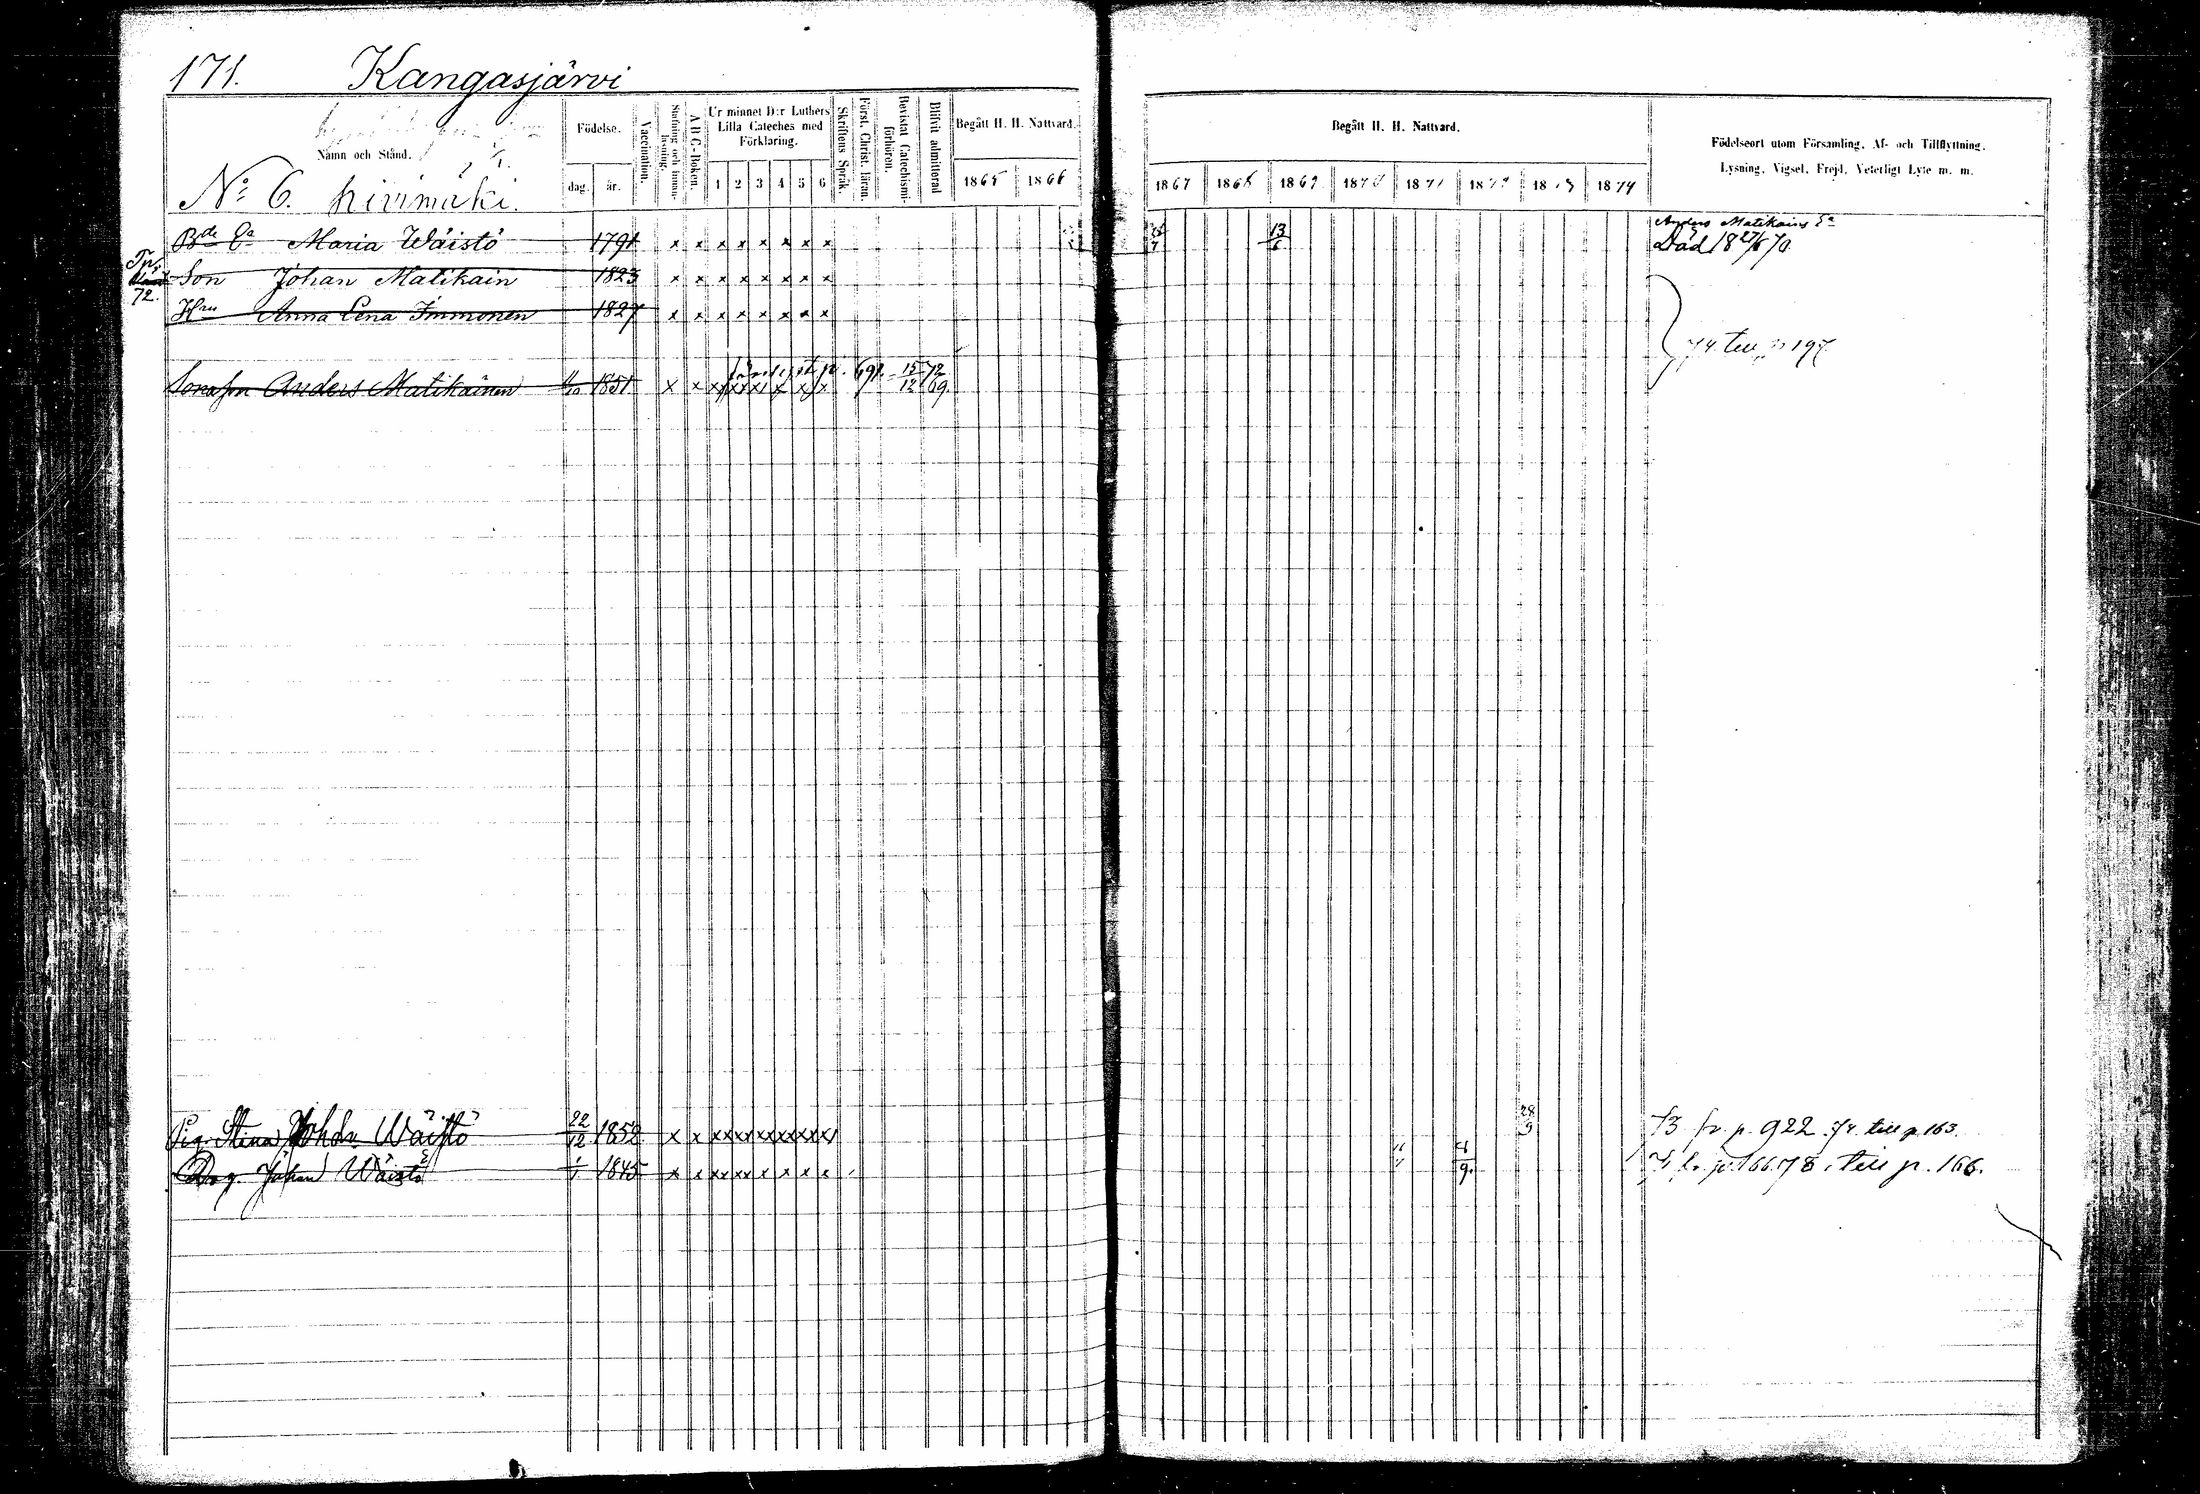 171. Kangasjärvi
Namn och Stånd.
Födelse.
dag. år.
Vaccination.
Stafning och innanläsning.
A B C-Boken.
Ur minnet D:r Luthers Lilla Cateches med Förklaring.
1 2 3 4 5 6
Skriftens Språk.
Först. Christ. läran.
Bevistat Catechismiförhören.
Blifvit admitterad
Begått H. H. Nattvard.
1865 1866
Begått H. H. Nattvard.
1867 1868 1869 1870 1871 1872 1873 1874
Födelseort utom Församling. Af- och Tillflyttning.
Lysning. Vigsel. Frejd. Vetetligt Lyte m. m.
No 6. hirimäki.
Anders Matikains Ea
Bde Ea Maria Wäistö 1791 x x x x x x x x 13/6 Död 18 27/6 70
72.
Son Johan Matikain 1823 x x x x x x x x
Hru Anna Lena Immonen 1827 x x x x x x x x
74. till p 197
Sonason Anders Matikainen 1851 x x 15/12 69. 72
Pig. Stina Johdr Wäistö 22/12 1852 x x xxxxxxxxxxx 28/9 73 fr. p. 922. 74. till p 163.
Drg. Johan Wäistö 1/1 1845 x x xxxx x x x x 9. fr. p. 166. 78. till p. 166.